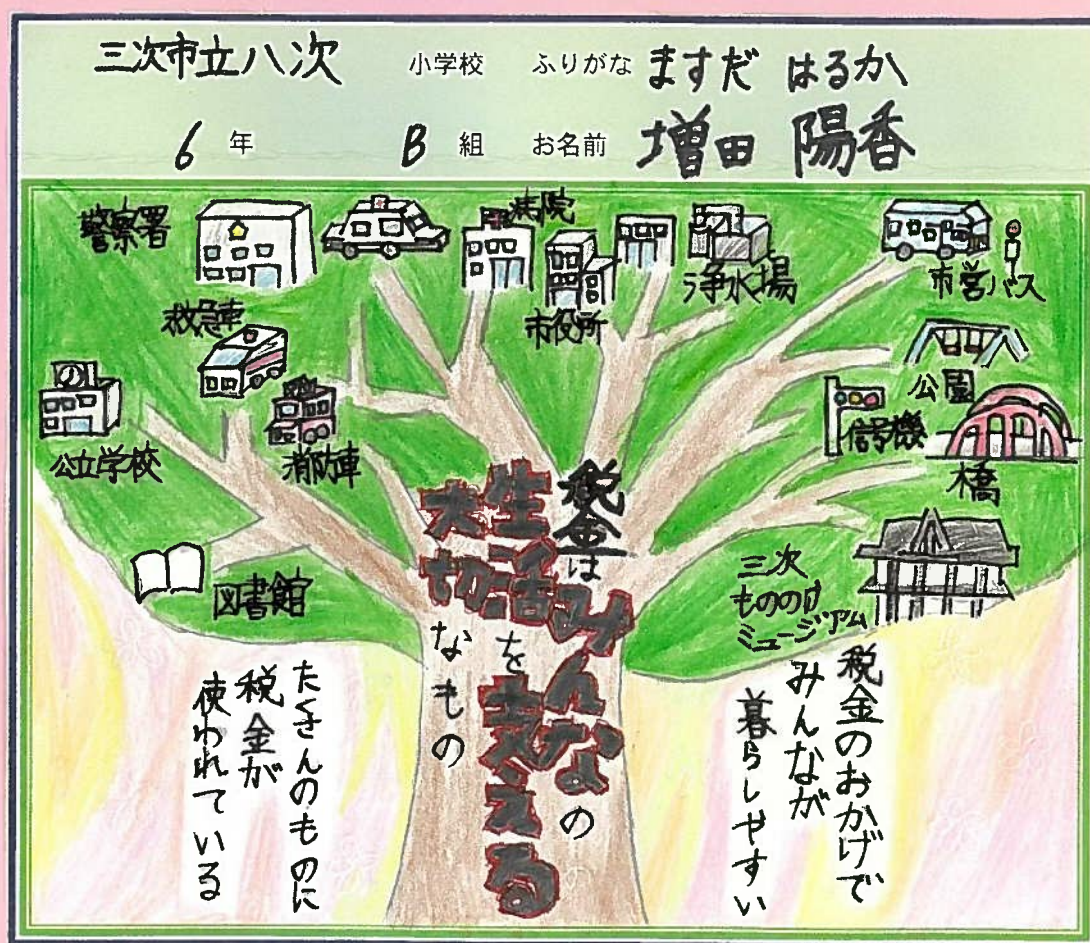 三次市立八次 小学校 ふりがな ますだ はるか
6 年 B 組 お名前 増田 陽香
警察署
病院
市役所
浄水場
市営バス
救急車
公立学校
消防車
公園
信号機
橋
図書館
三次
もののけ
ミュージアム
税金は
みんなの
生活を支える
大切なもの
税金のおかげで
みんなが
暮らしやすい
たくさんのものに
税金が
使われている